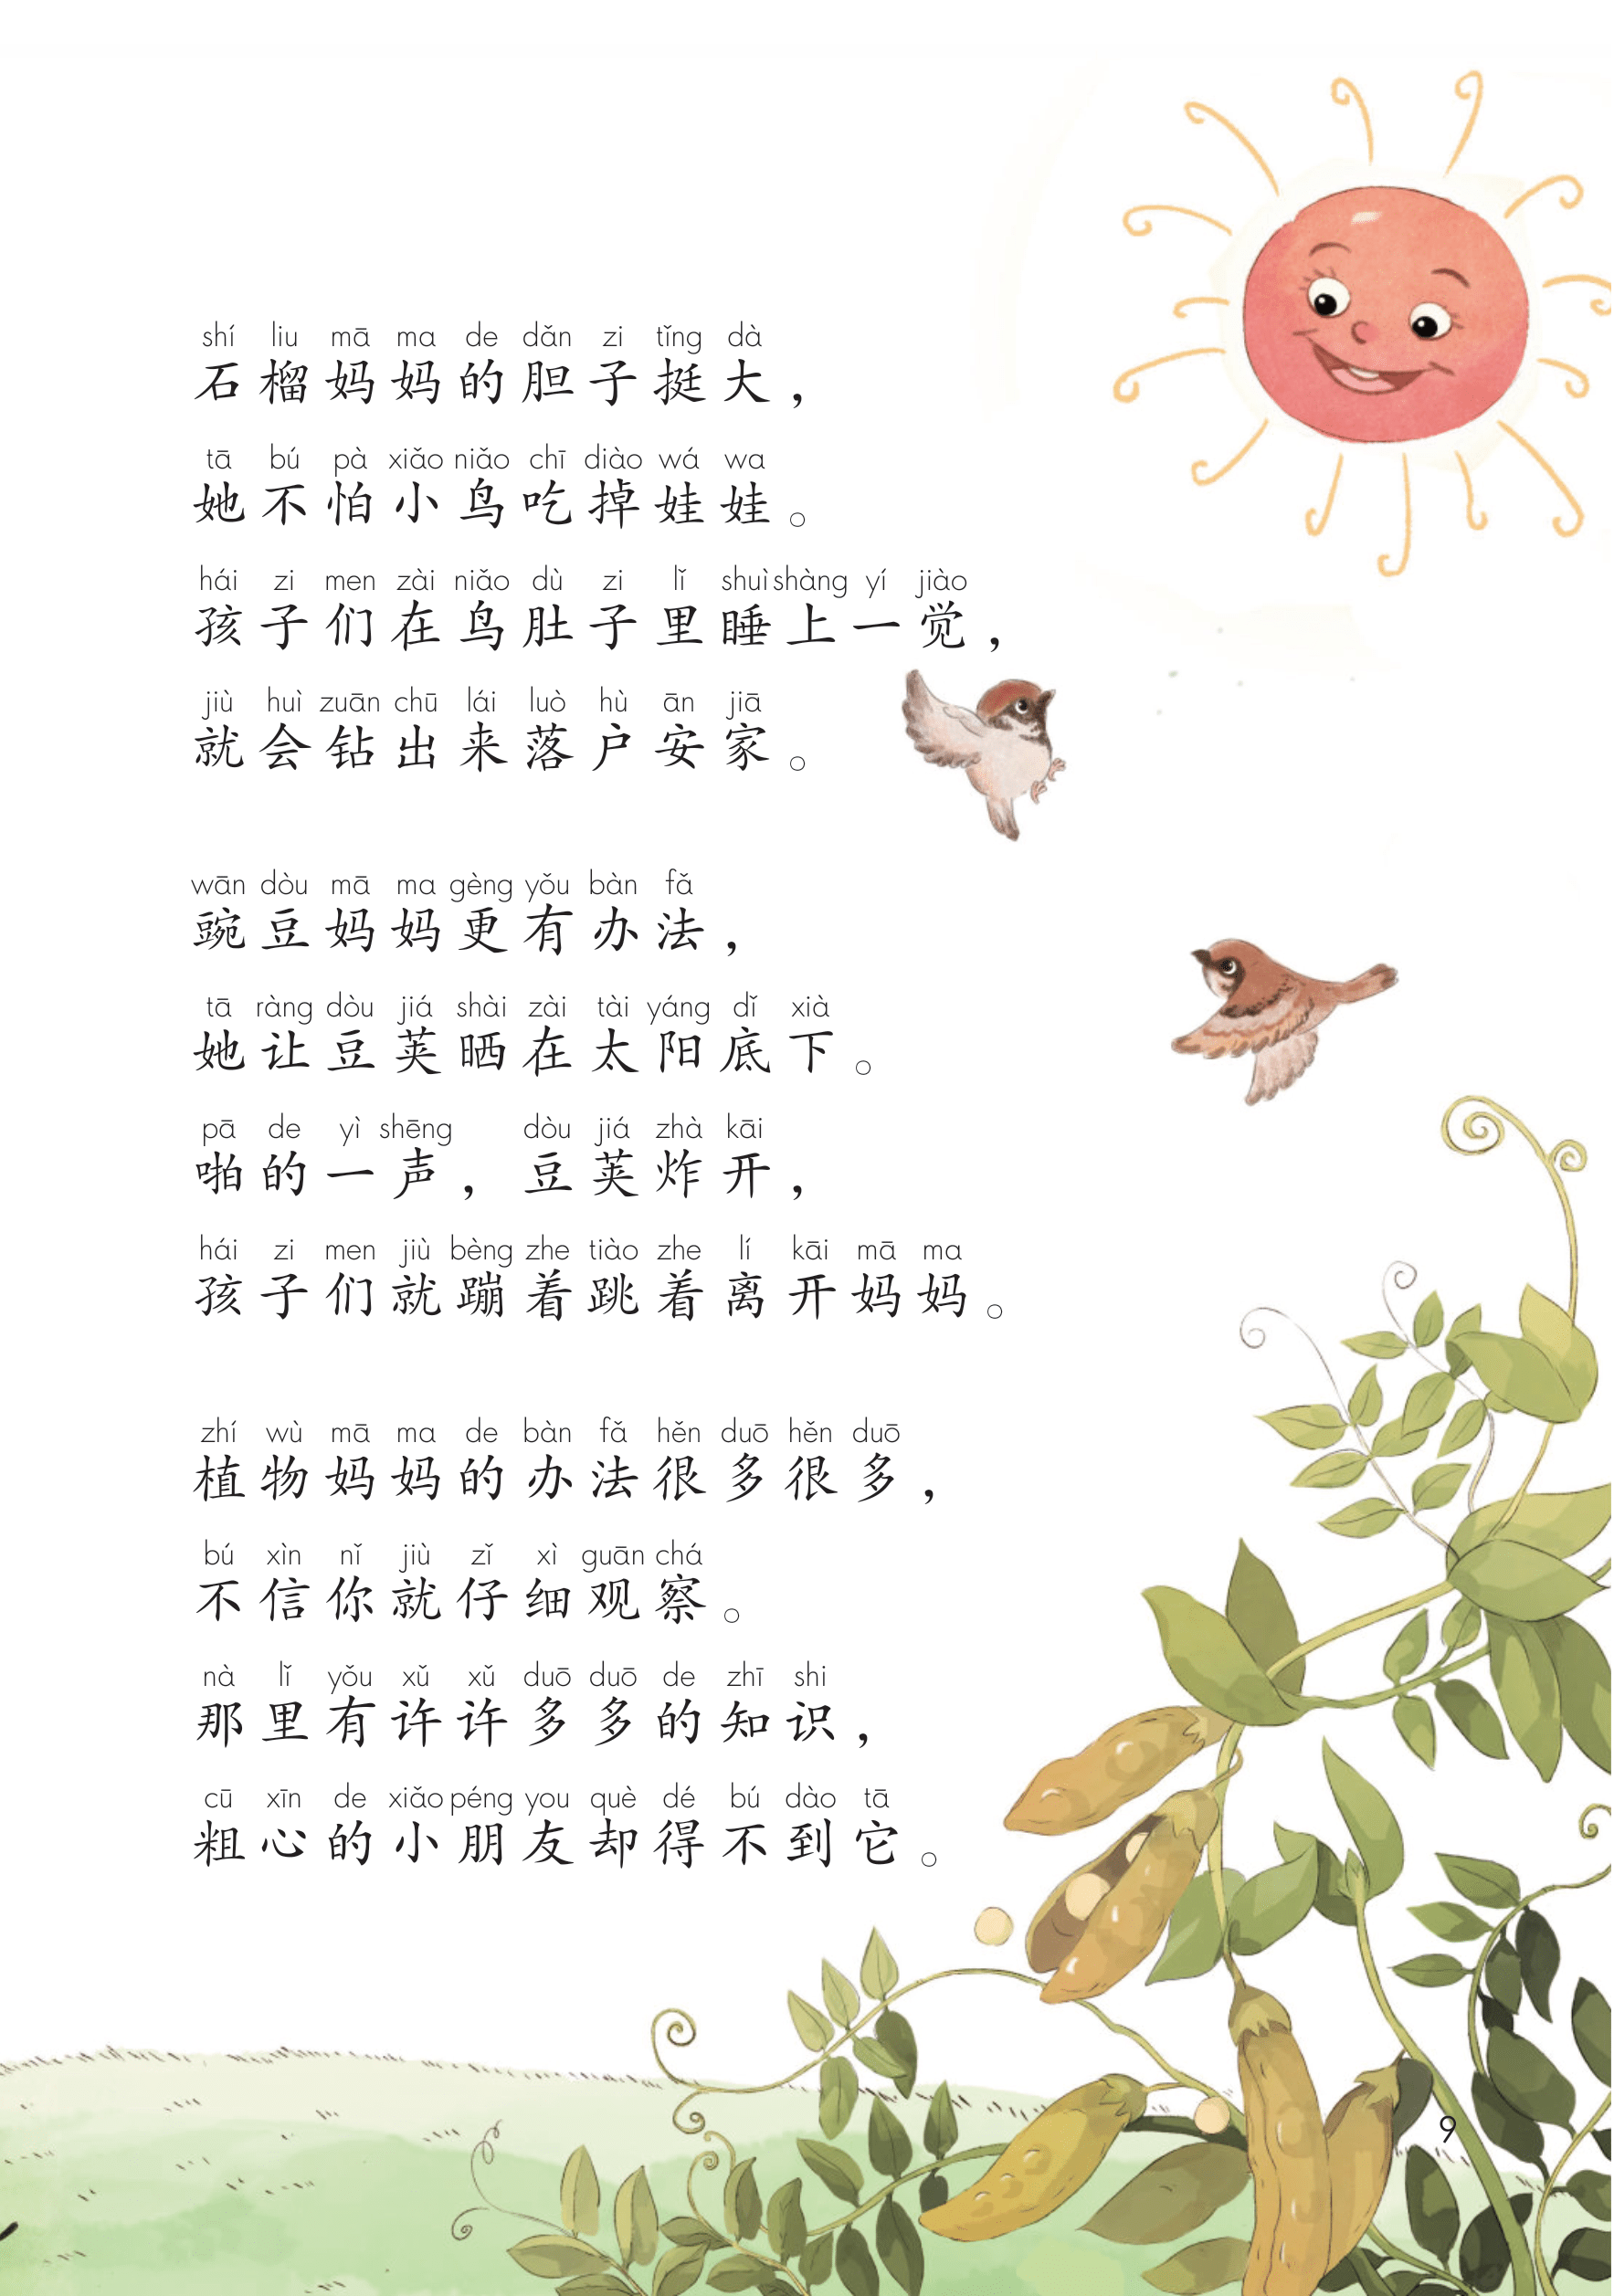 shí liu mā ma de dǎn zi tǐng dà
石榴妈妈的胆子挺大，
tā bú pà xiǎo niǎo chī diào wá wa
她不怕小鸟吃掉娃娃。
hái zi men zài niǎo dù zi lǐ shuì shàng yí jiào
孩子们在鸟肚子里睡上一觉，
jiù huì zuān chū lái luò hù ān jiā
就会钻出来落户安家。
wān dòu mā ma gèng yǒu bàn fǎ
豌豆妈妈更有办法，
tā ràng dòu jiá shài zài tài yáng dǐ xià
她让豆荚晒在太阳底下。
pā de yì shēng dòu jiá zhà kāi
啪的一声，豆荚炸开，
hái zi men jiù bèng zhe tiào zhe lí kāi mā ma
孩子们就蹦着跳着离开妈妈。
zhí wù mā ma de bàn fǎ hěn duō hěn duō
植物妈妈的办法很多很多，
bú xìn nǐ jiù zǐ xì guān chá
不信你就仔细观察。
nà lǐ yǒu xǔ xǔ duō duō de zhī shi
那里有许许多多的知识，
cū xīn de xiǎo péng you què dé bú dào tā
粗心的小朋友却得不到它。
9